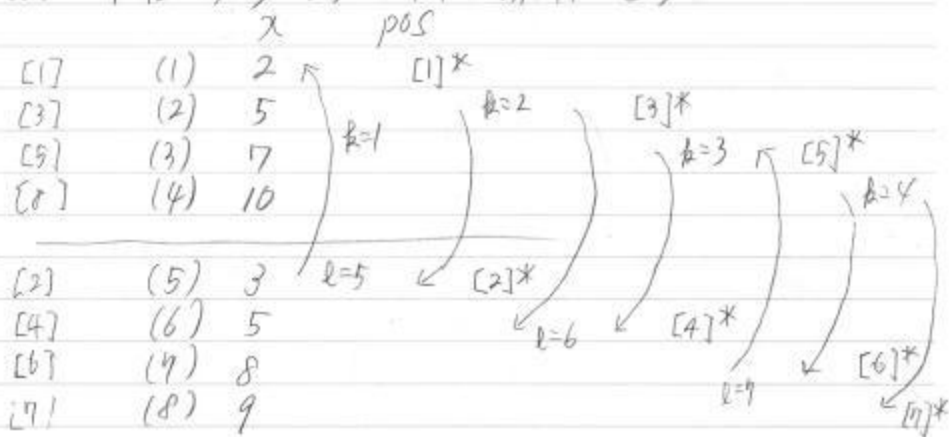 x pos
[1] (1) 2 [1]*
[3] (2) 5 k=2 [3]*
[5] (3) 7 k=1 k=3 [5]*
[8] (4) 10 k=4
[2] (5) 3 l=5 [2]*
[4] (6) 5 l=6 [4]*
[6] (7) 8 l=7 [6]*
[7] (8) 9 [7]*